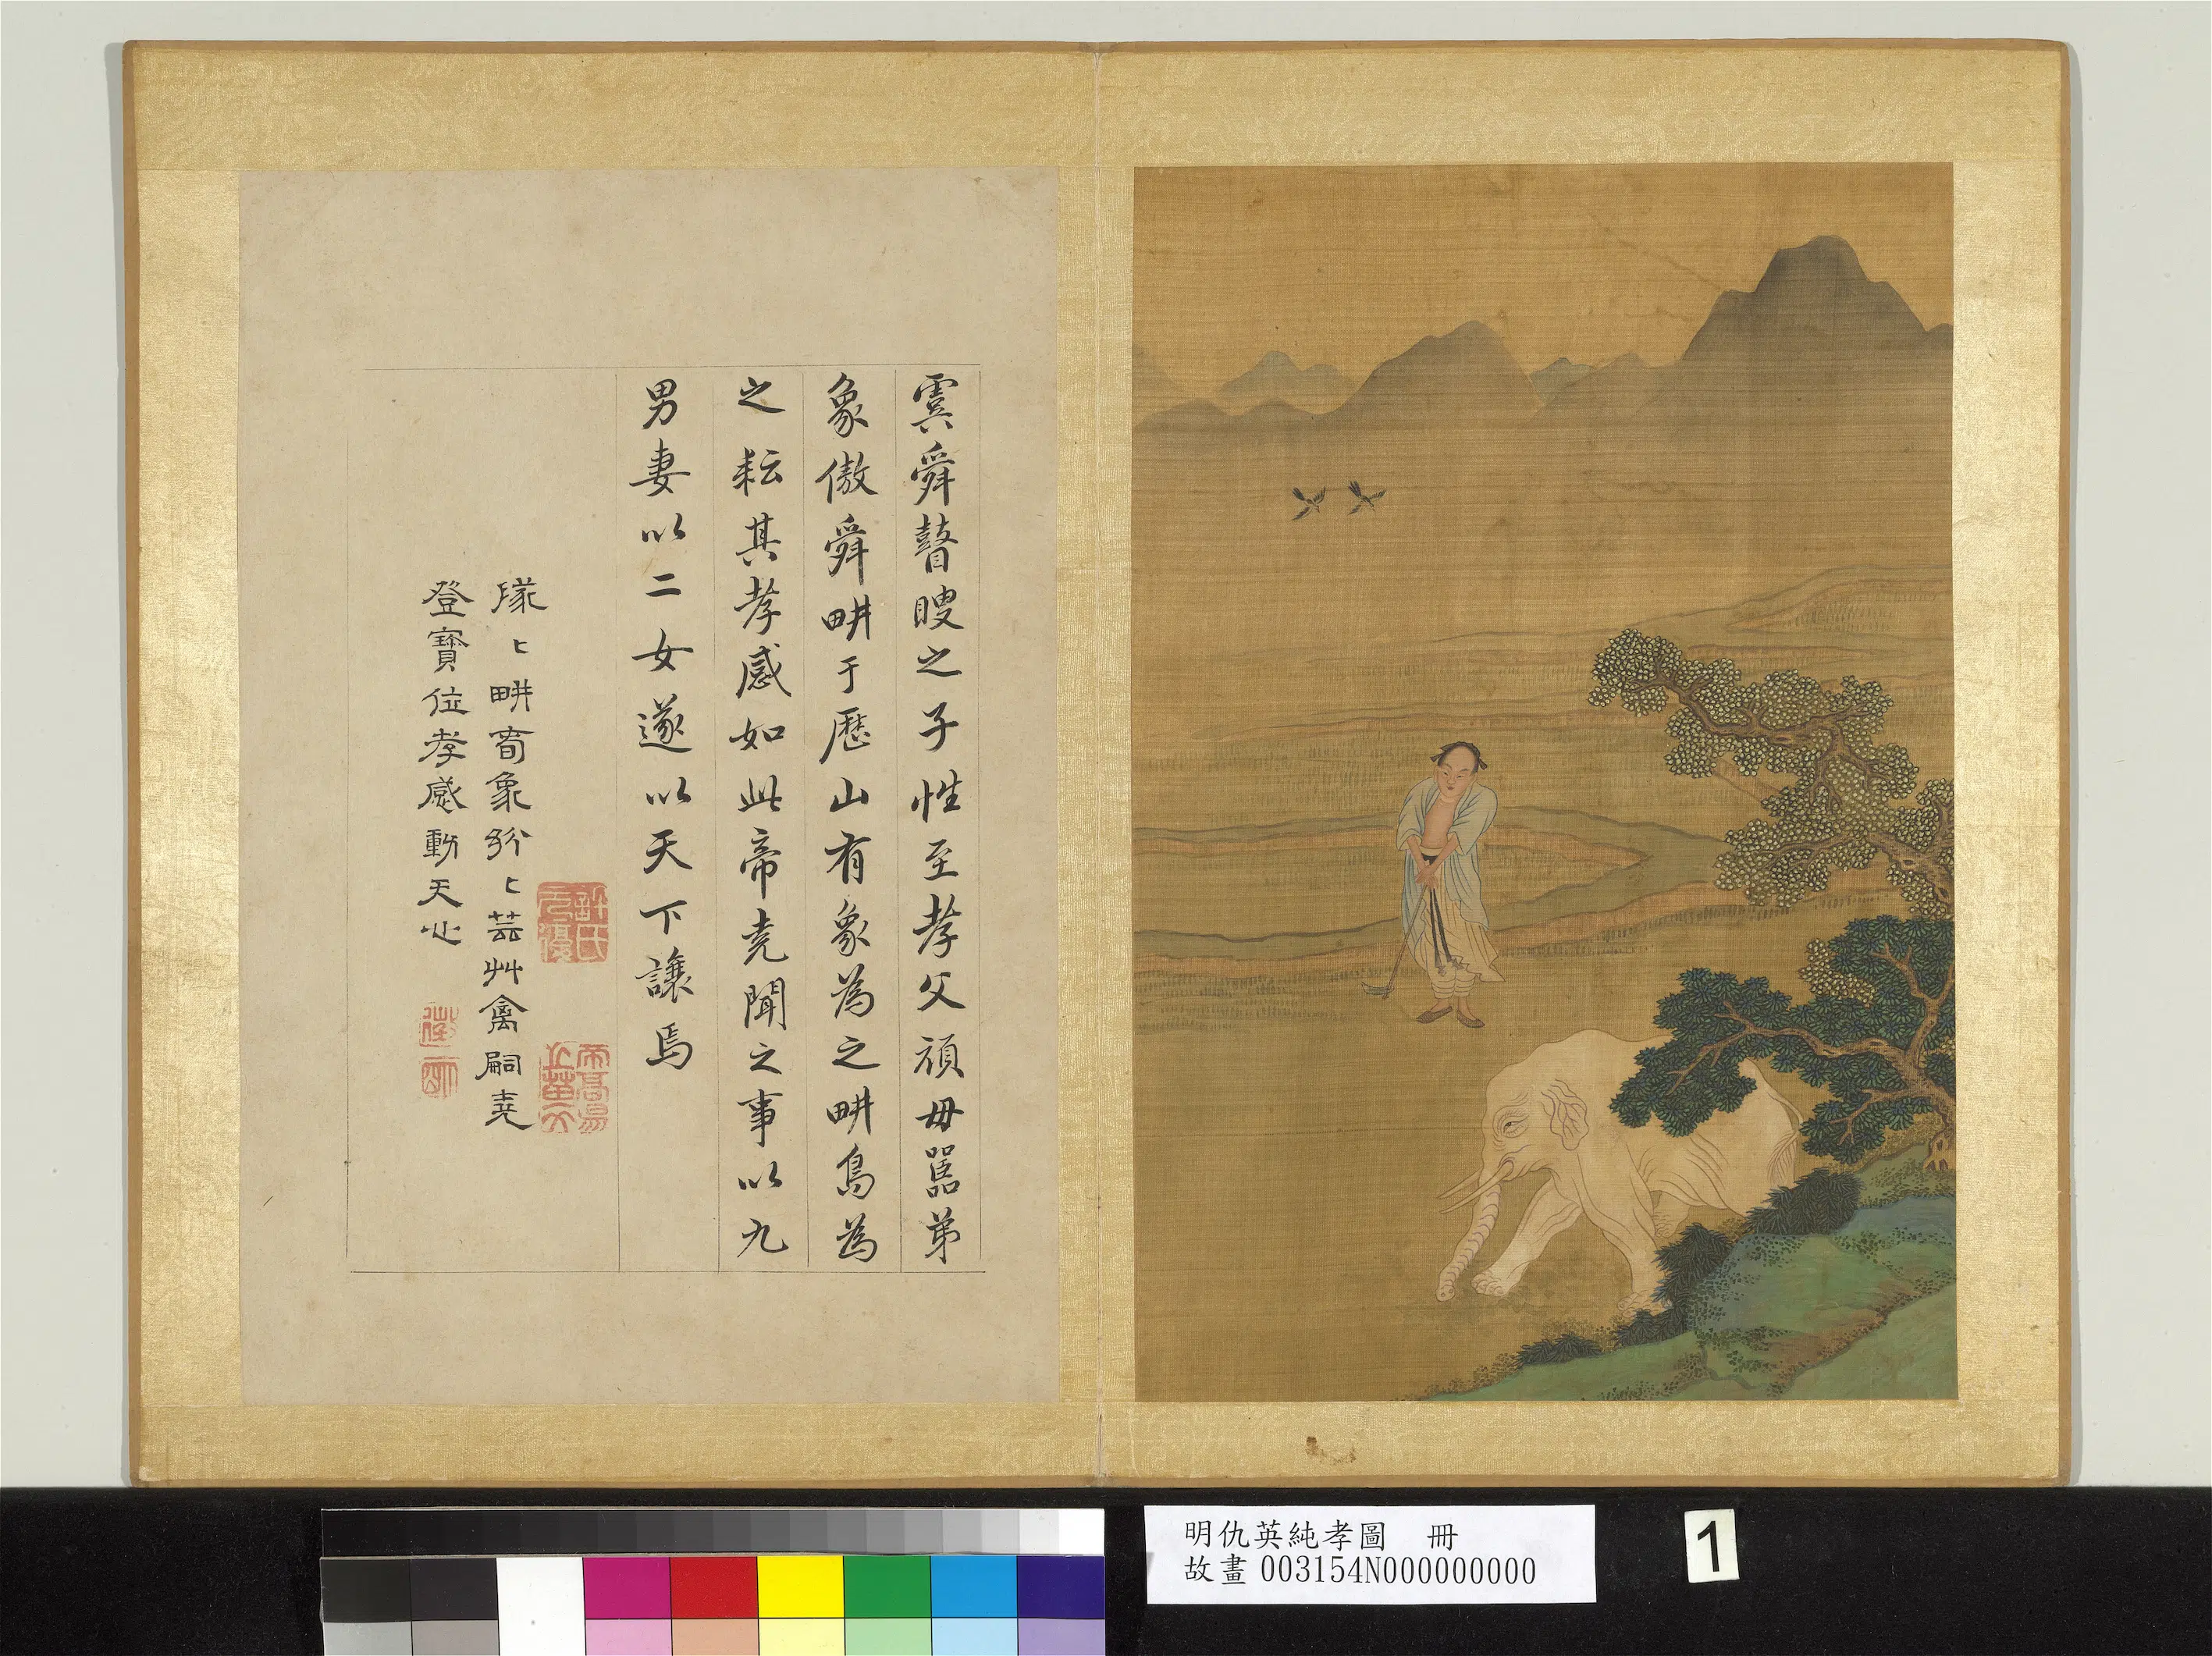 虞舜瞽瞍之子性至孝父頑毋嚚弟
象傲舜畊于歷山有象為之畊鳥為
之耘其孝感如此帝堯聞之事以九
男妻以二女遂以天下讓焉
隊〻畊萅象紛〻芸艸禽嗣堯
登寶位孝感動天心
許氏元優
徵明
明仇英純孝圖 冊
故畫003154N000000000
1